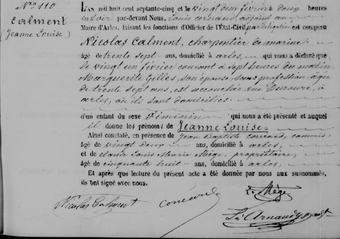 N° 110
Calment
(Jeanne Louise)
L'an mil huit cent soixante-quinze et le vingt deux février à deux heures
du soir par-devant Nous, Louis
Maire d'Arles, faisant les fonctions d'Officier de l'État-Civil est comparu
Nicolas Calment, charpentier de marine
âgé
de trente sept ans, domicilié à arles, qui nous a déclaré que
de vingt un février courant à sept heures du matin
Marguerite Gilles, son épouse, sans profession, âgée
de trente sept ans, est accouchée en
arles, où ils sont domiciliés
d'un enfant du sexe féminin qui nous a été présenté et auquel
il donne les prénoms de Jeanne Louise
Ainsi constaté, en présence de Jean Baptiste commis
âgé de vingt deux ans, domicilié à arles,
et de Louis Marie Mège, propriétaire, âgé
de cinquante huit ans, domicilié à arles.
Et après que lecture du présent acte a été donnée par nous aux susnommés,
ils ont signé avec nous.
L. Mège
Nicolas Calment